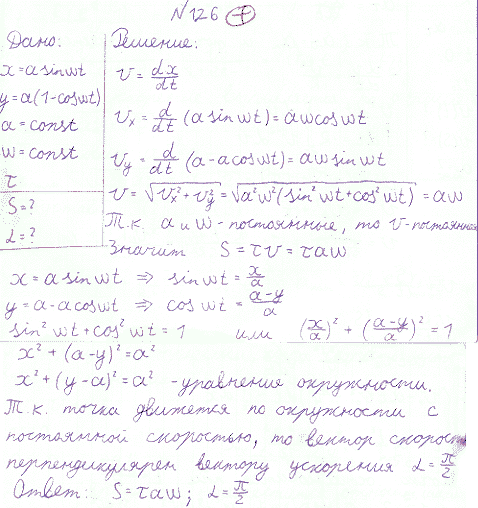 №126 +
Дано:
x=a sinωt
y=a(1-cosωt)
a=const
ω=const
τ
S=?
α=?
Решение:
v = dx/dt
vₓ = d/dt (a sin ωt) = aω cos ωt
v_y = d/dt (a - a cos ωt) = aω sin ωt
v = √(vₓ² + v_y²) = √(a²ω²(sin²ωt + cos²ωt)) = aω
Т.к. a и ω - постоянные, то v - постоянная
Значит S = τv = τaω
x = a sin ωt ⇒ sin ωt = x/a
y = a - a cos ωt ⇒ cos ωt = (a-y)/a
sin²ωt + cos²ωt = 1 или (x/a)² + ((a-y)/a)² = 1
x² + (a-y)² = a²
x² + (y-a)² = a² - уравнение окружности.
Т.к. точка движется по окружности с
постоянной скоростью, то вектор скорости
перпендикулярен вектору ускорения α = π/2
Ответ: S = τaω; α = π/2